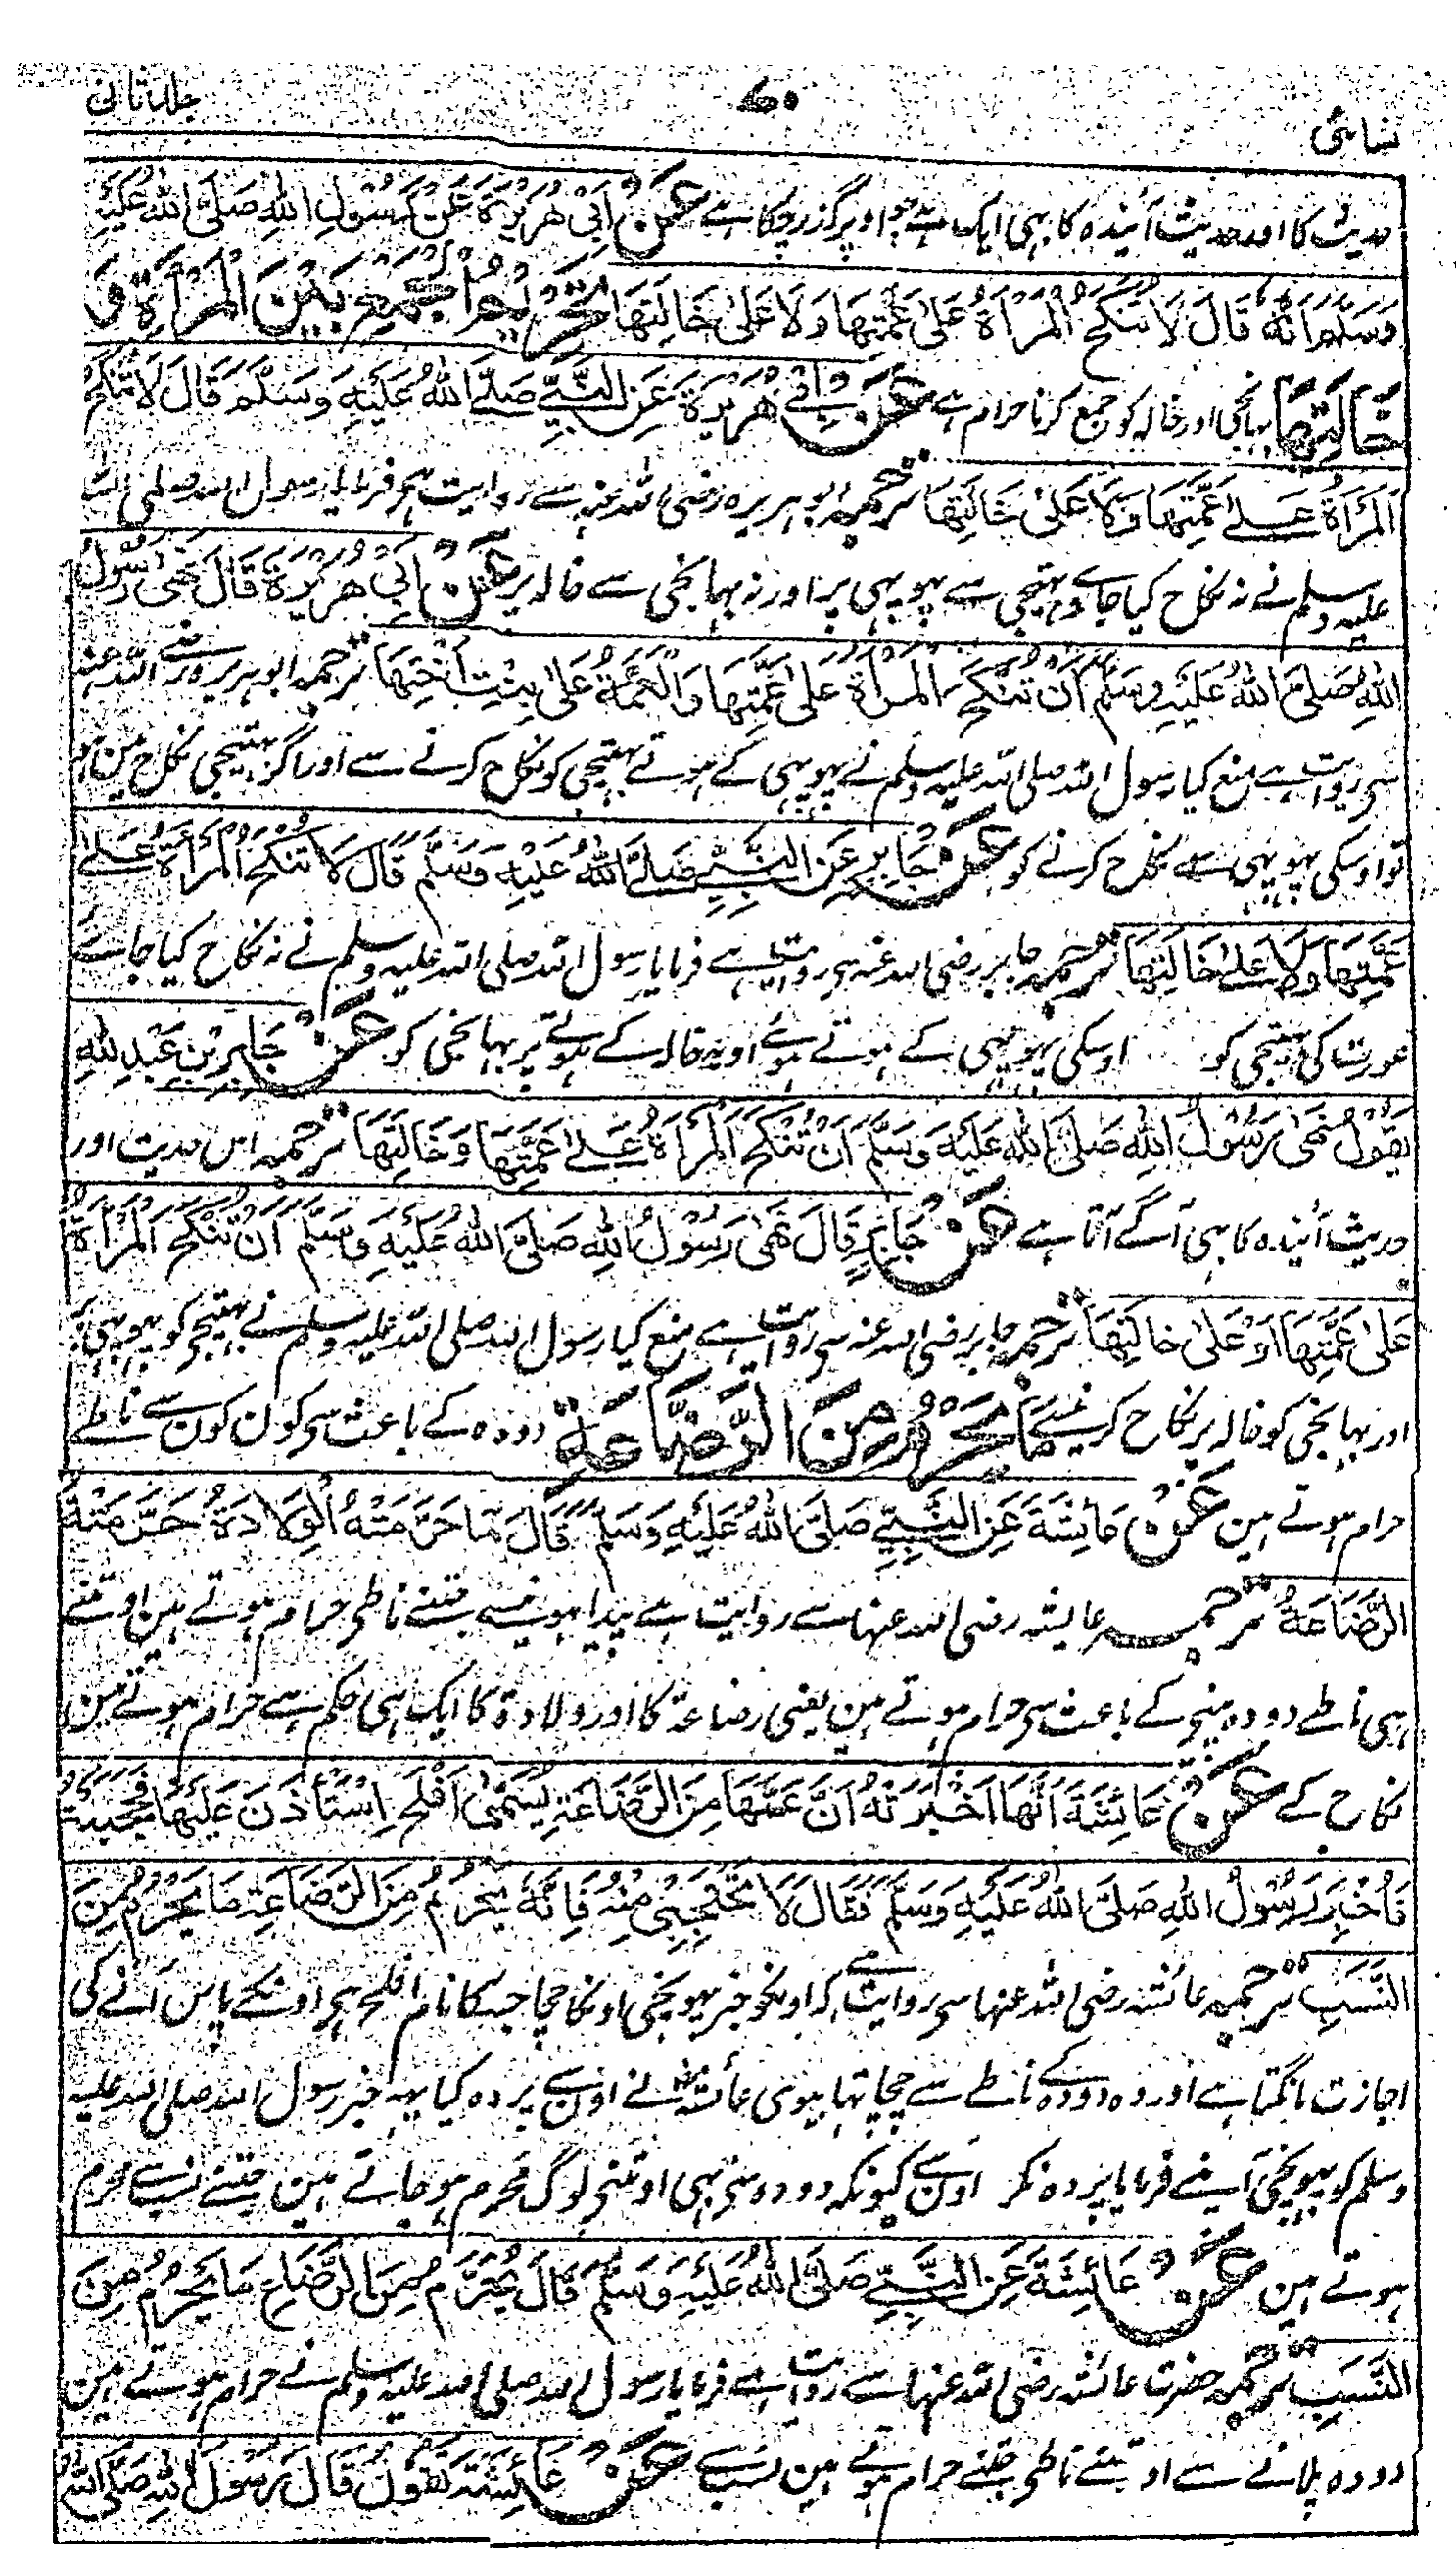 نسائی
۷۰
جلد ثانی
حدیث کا اور حدیث آیندہ کا بہی ایک ہے جو اوپر گزر چکا ہے عَنْ اَبِیْ ہُرَیْرَۃَ عَنْ رَسُوْلِ اللّٰہِ صَلَّی اللّٰہُ عَلَیْہِ
وَسَلَّمَ اَنَّہٗ قَالَ لَا تُنْکَحُ الْمَرْأَۃُ عَلٰی عَمَّتِہَا وَلَا عَلٰی خَالَتِہَا تَحْرِیْمُ الْجَمْعِ بَیْنَ الْمَرْأَۃِ وَ
خَالَتِہَا بہانجی اور خالہ کو جمع کرنا حرام ہے عَنْ اَبِیْ ہُرَیْرَۃَ عَنِ النَّبِیِّ صَلَّی اللّٰہُ عَلَیْہِ وَسَلَّمَ قَالَ لَا تُنْکَحُ
الْمَرْأَۃُ عَلٰی عَمَّتِہَا وَلَا عَلٰی خَالَتِہَا ترجمہ ابو ہریرہ رضی اللہ عنہ سے روایت ہی فرمایا رسول اللہ صلی اللہ
علیہ وسلم نے نہ نکاح کیا جاے بہتیجی سے پہوپہی پر اور نہ بہانجی سے خالہ پر عَنْ اَبِیْ ہُرَیْرَۃَ قَالَ نَہٰی رَسُوْلُ
اللّٰہِ صَلَّی اللّٰہُ عَلَیْہِ وَسَلَّمَ اَنْ تُنْکَحَ الْمَرْأَۃُ عَلٰی عَمَّتِہَا وَالْعَمَّۃُ عَلٰی بِنْتِ اَخِیْہَا ترجمہ ابو ہریرہ رضی اللہ عنہ
سی روایت ہے منع کیا رسول اللہ صلی اللہ علیہ وسلم نے پہوپہی کے ہوتے بہتیجی کو نکاح کرنے سے اور اگر بہتیجی نکاح مین ہو
تو اوسکی پہوپہی سے نکاح کرنے کو عَنْ جَابِرٍ عَنِ النَّبِیِّ صَلَّی اللّٰہُ عَلَیْہِ وَسَلَّمَ قَالَ لَا تُنْکَحُ الْمَرْأَۃُ عَلٰی
عَمَّتِہَا وَلَا عَلٰی خَالَتِہَا ترجمہ جابر رضی اللہ عنہ سی روایت ہے فرمایا رسول اللہ صلی اللہ علیہ وسلم نے نہ نکاح کیا جاے
عورت کی بہتیجی کو اوسکی پہوپہی کے ہوتے ہوئے اور نہ خالہ کے ہوتے پر بہانجی کو عَنْ جَابِرِ بْنِ عَبْدِ اللّٰہِ
یَقُوْلُ نَہٰی رَسُوْلُ اللّٰہِ صَلَّی اللّٰہُ عَلَیْہِ وَسَلَّمَ اَنْ تُنْکَحَ الْمَرْأَۃُ عَلٰی عَمَّتِہَا وَخَالَتِہَا ترجمہ اس حدیث اور
حدیث آیندہ کا بہی آگے آتا ہے عَنْ جَابِرٍ قَالَ نَہٰی رَسُوْلُ اللّٰہِ صَلَّی اللّٰہُ عَلَیْہِ وَسَلَّمَ اَنْ تُنْکَحَ الْمَرْأَۃُ
عَلٰی عَمَّتِہَا اَوْ عَلٰی خَالَتِہَا ترجمہ جابر رضی اللہ عنہ سی روایت ہے منع کیا رسول اللہ صلی اللہ علیہ وسلم نے بہتیجی کو پہوپہی پر
اور بہانجی کو خالہ پر نکاح کرنیسے مَا یَحْرُمُ مِنَ الرَّضَاعَۃِ دودہ کے باعث سی کون کون سے ناطے
حرام ہوتے ہین عَنْ عَائِشَۃَ عَنِ النَّبِیِّ صَلَّی اللّٰہُ عَلَیْہِ وَسَلَّمَ قَالَ مَا حَرَّمَتْہُ الْوِلَادَۃُ حَرَّمَتْہُ
الرَّضَاعَۃُ ترجمہ عایشہ رضی اللہ عنہا سے روایت ہے پیدا ہونیسے جتنے ناطی حرام ہوتے ہین اوتنے
ہی ناطے دودہ پینے کے باعث سی حرام ہوتے ہین یعنی رضاعۃ کا اور ولادۃ کا ایک ہی حکم ہے حرام ہونے مین
نکاح کے عَنْ عَائِشَۃَ اَنَّہَا اَخْبَرَتْہُ اَنَّ عَمَّہَا مِنَ الرَّضَاعَۃِ یُسَمّٰی اَفْلَحَ اِسْتَأْذَنَ عَلَیْہَا فَحَجَبَتْہُ
فَاُخْبِرَ رَسُوْلُ اللّٰہِ صَلَّی اللّٰہُ عَلَیْہِ وَسَلَّمَ فَقَالَ لَا تَحْتَجِبِیْ مِنْہُ فَاِنَّہٗ یَحْرُمُ مِنَ الرَّضَاعَۃِ مَا یَحْرُمُ مِنَ
النَّسَبِ ترجمہ عائشہ رضی اللہ عنہا سی روایت ہے کہ اونکو خبر پہونچی اونکا چچا جسکا نام افلح ہی اونکے پاس آنے کی
اجازت مانگتا ہے اور وہ دودہ کے ناطے سے چچا تہا بیوی عائشہ نے اون سے پردہ کیا یہہ خبر رسول اللہ صلی اللہ علیہ
وسلم کو پہونچی آپنے فرمایا پردہ نکر اون سے کیونکہ دودہ سی بہی اوتنی لوگ محرم ہو جاتے ہین جتنے نسب سے محرم
ہوتے ہین عَنْ عَائِشَۃَ عَنِ النَّبِیِّ صَلَّی اللّٰہُ عَلَیْہِ وَسَلَّمَ قَالَ یَحْرُمُ مِنَ الرَّضَاعِ مَا یَحْرُمُ مِنَ
النَّسَبِ ترجمہ حضرت عائشہ رضی اللہ عنہا سے روایت ہے فرمایا رسول اللہ صلی اللہ علیہ وسلم نے حرام ہوتے ہین
دودہ پلانے سے اوتنے ناطی جتنے حرام ہوتے ہین نسب سے عَنْ عَائِشَۃَ تَقُوْلُ قَالَ رَسُوْلُ اللّٰہِ صَلَّی اللّٰہُ